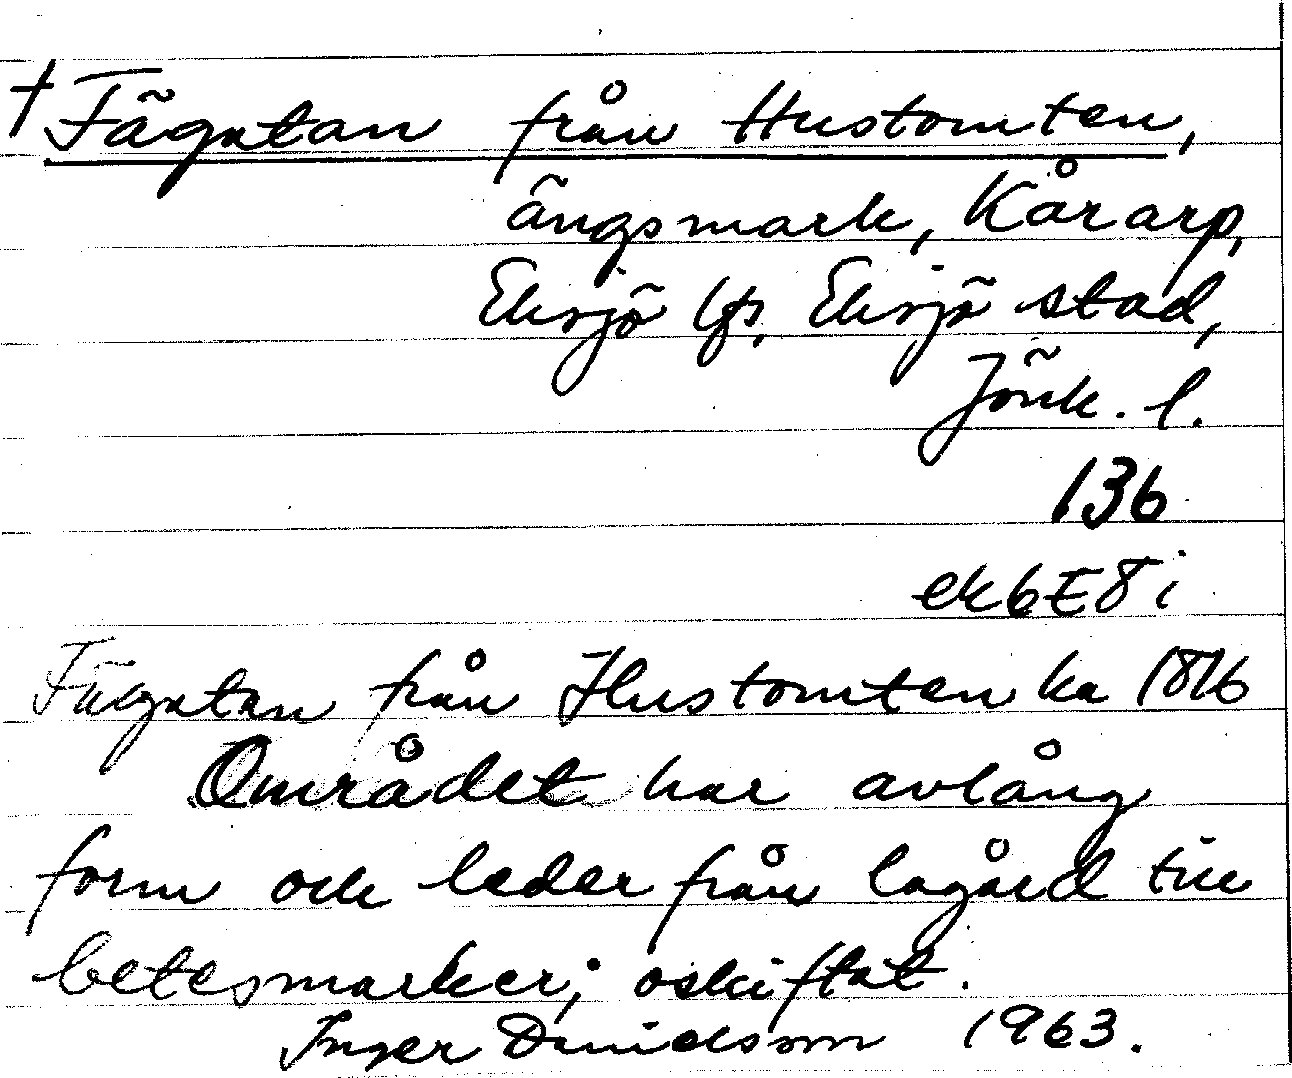 † Fägatan från Hustomten,
ängsmark, Kårarp,
Eksjö lfs, Eksjö stad,
Jönk. l.
136
ek6E8i
Fägatan från Hustomten ka 1816
Området har avlång
form och leder från lagård till
betesmarker; oskiftat.
Inger Danielsson 1963.